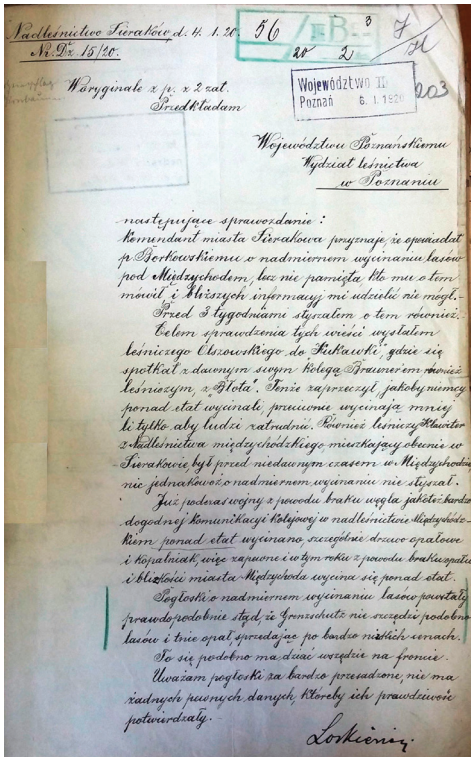 Nadleśnictwo Sieraków d. 4.1.20.
Nr. Dz. 15/20.
56 B 3
20 2
7
W oryginale z p. z 2 zał.
Przedkładam
Województwo II
Poznań 6.I.1920
203
Województwu Poznańskiemu
Wydział leśnictwa
w Poznaniu
następujace sprawozdanie:
Komendant miasta Sierakowa przyznaje, że opowiadał
p. Borkowskiemu o nadmiernem wycinaniu lasów
pod Międzychodem, lecz nie pamięta kto mu o tem
mówił i bliższych informacyj mi udzielić nie mógł.
Przed 3 tygodniami słyszałem o tem również.
Celem sprawdzenia tych wieści wysłałem
leśniczego Olszowskiego do "Łukawki", gdzie się
spotkał z dawnym swym kolegą Brauner'em również
leśniczym z "Błota". Tenże zaprzeczył, jakoby niemcy
ponad etat wycinali, przeciwnie wycinają mniej
li tylko aby ludzi zatrudnić. Również leśniczy Klawiter
z Nadleśnictwa międzychodzkiego mieszkający obecnie w
Sierakowie był przed niedawnym czasem w Międzychodzie
nic jednakowoż o nadmiernem wycinaniu nie słyszał.
Już podczas wojny z powodu braku węgla jakoteż bardzo
dogodnej komunikacyi kolejowej w nadleśnictwie Międzychodz-
kiem ponad etat wycinano, szczególnie drzewo opałowe
i kopalniak, więc zapewne i w tym roku z powodu braku opału
i blizkości miasta Międzychoda wycina się ponad etat.
Pogłoski o nadmiernem wycinaniu lasów powstały
prawdopodobnie stąd, że Grenzschutz nie szczędzi podobno
lasów i tnie opał, sprzedając po bardzo nizkich cenach.
To się podobno ma dziać wszędzie na froncie.
Uważam pogłoski za bardzo przesadzone, nie ma
żadnych pewnych danych, któreby ich prawdziwość
potwierdzały.